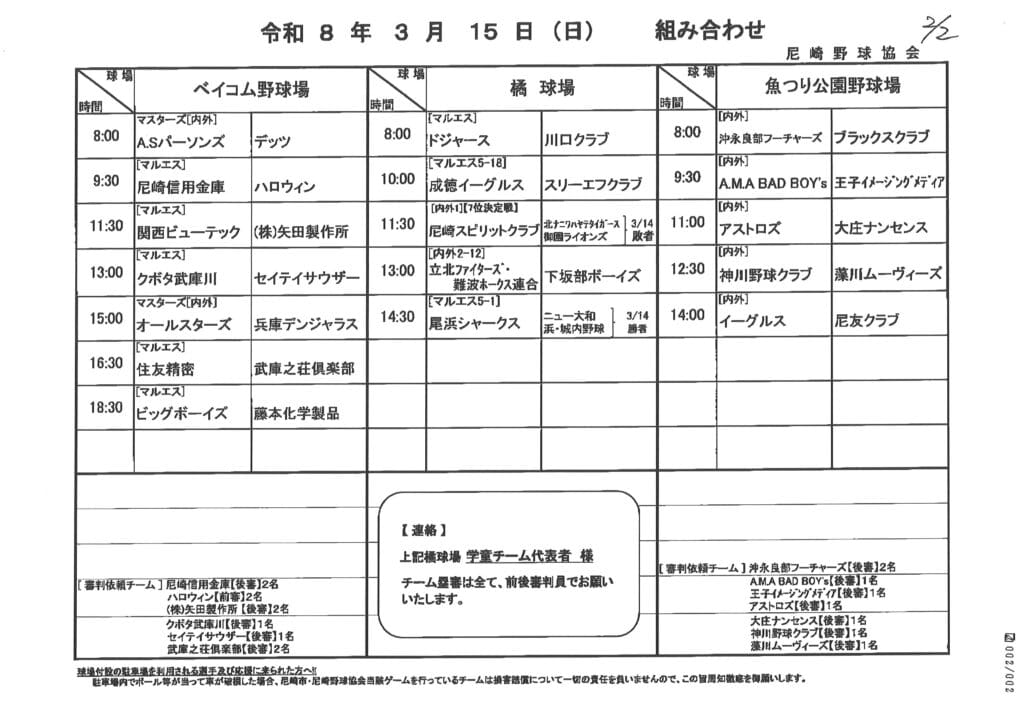 令和 8 年 3 月 15 日 (日) 組み合わせ
2/2
尼崎野球協会
球場 時間 ベイコム野球場
8:00 マスターズ[内外] A.Sパーソンズ デッツ
9:30 [マルエス] 尼崎信用金庫 ハロウィン
11:30 [マルエス] 関西ビューテック (株)矢田製作所
13:00 [マルエス] クボタ武庫川 セイテイサウザー
15:00 マスターズ[内外] オールスターズ 兵庫デンジャラス
16:30 [マルエス] 住友精密 武庫之荘倶楽部
18:30 [マルエス] ビッグボーイズ 藤本化学製品
球場 時間 橘 球場
8:00 [マルエス] ドジャース 川口クラブ
10:00 [マルエス5-18] 成徳イーグルス スリーエフクラブ
11:30 [内外1][7位決定戦] 尼崎スピリットクラブ 北ナニワハヤテタイガース 御園ライオンズ 3/14 敗者
13:00 [内外2-12] 立北ファイターズ・難波ホークス連合 下坂部ボーイズ
14:30 [マルエス5-1] 尾浜シャークス ニュー大和 浜・城内野球 3/14 勝者
球場 時間 魚つり公園野球場
8:00 [内外] 沖永良部フーチャーズ ブラックスクラブ
9:30 [内外] A.M.A BAD BOY's 王子イメージングメディア
11:00 [内外] アストロズ 大庄ナンセンス
12:30 [内外] 神川野球クラブ 藻川ムーヴィーズ
14:00 [内外] イーグルス 尼友クラブ
[審判依頼チーム] 尼崎信用金庫【後審】2名
ハロウィン【前審】2名
(株)矢田製作所【後審】2名
クボタ武庫川【後審】1名
セイテイサウザー【後審】1名
武庫之荘倶楽部【後審】1名
【連絡】
上記橘球場 学童チーム代表者 様
チーム塁審は全て、前後審判員でお願い
いたします。
[審判依頼チーム] 沖永良部フーチャーズ【後審】2名
A.M.A BAD BOY's【後審】1名
王子イメージングメディア【後審】1名
アストロズ【後審】1名
大庄ナンセンス【後審】1名
神川野球クラブ【後審】1名
藻川ムーヴィーズ【後審】1名
球場付設の駐車場を利用される選手及び応援に来られた方へ!!
駐車場内でボール等が当って車が破損した場合、尼崎市・尼崎野球協会当該ゲームを行っているチームは損害賠償について一切の責任を負いませんので、この旨周知徹底を御願いします。
002/002